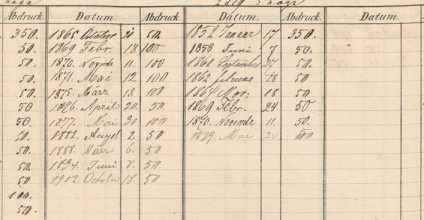 Abdruck. Datum. Abdruck. Datum. Abdruck. Datum.
350. 1865 20 50. 1857 Januar 17 350.
50. 1869 Febr. 18 100 1858 Juni 7 50.
50. 1870 Novbr 11. 100 1861 September 50
50. 1871. Mai 12. 100 1862 Februar 18 50
50. 1875. März 13. 100 1864 Mai. 18. 50
50 1876. April 20. 50 1869 Febr. 24 50
50. 1877. Mai 20 100 1870. Novembr 11. 50
50. 1882. August 2. 50 Mai 100
50. 1888. März 6. 50
50. 1894. Juni 7. 50
50 1902. October 18. 50
100.
50.